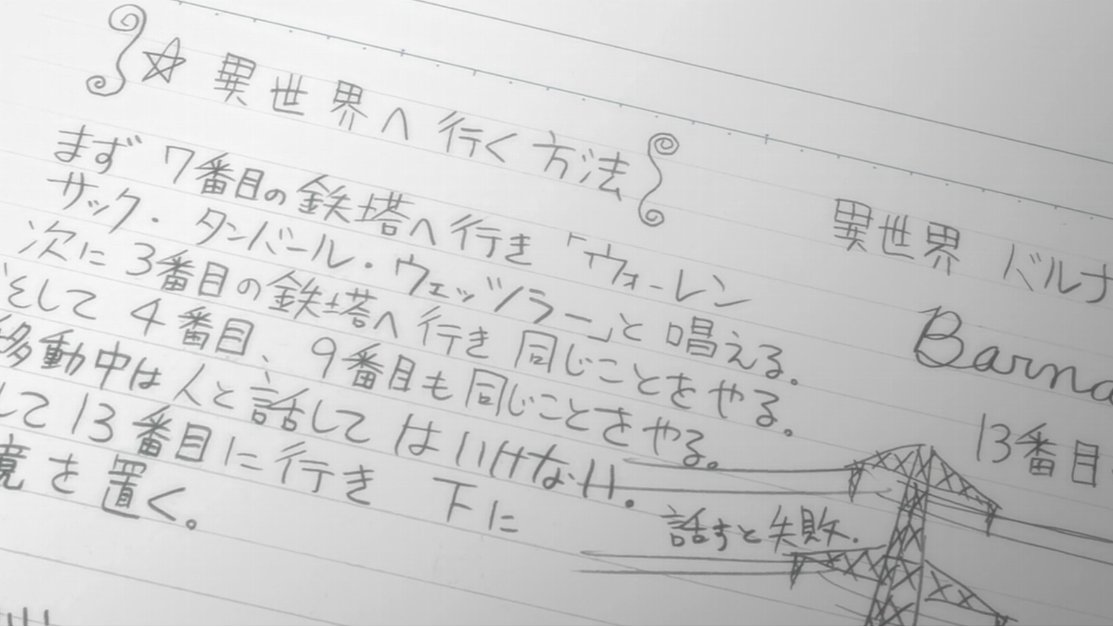 ☆ 異世界へ行く方法
まず 7番目の鉄塔へ行き「ウォーレン
サック・タンバール・ウェッソラー」と唱える。
次に 3番目の鉄塔へ行き 同じことをやる。
そして 4番目、9番目も同じことをやる。
移動中は人と話してはいけない。
して13番目に行き 下に
鏡を置く。
異世界 バルナ
Barna
13番目
話すと失敗.